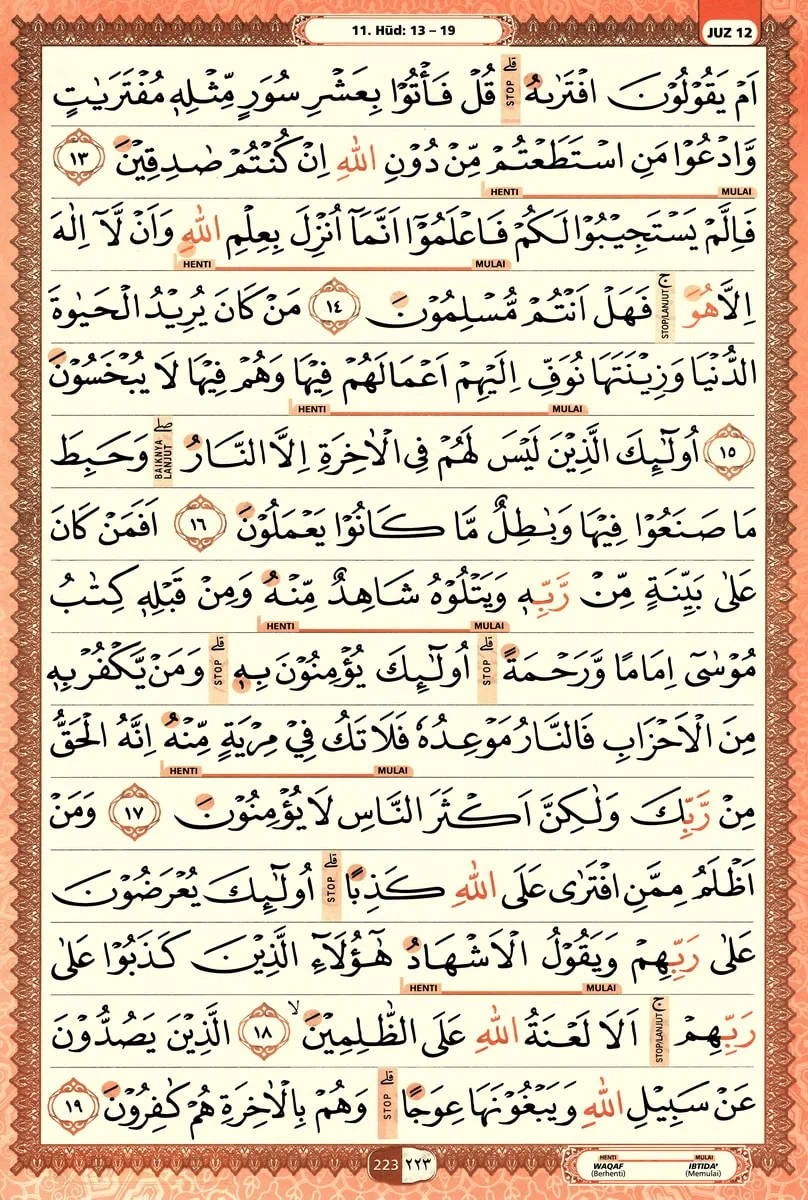 11. Hūd: 13 – 19
JUZ 12
اَمْ يَقُوْلُوْنَ افْتَرٰىهُ ۗ قُلْ فَأْتُوْا بِعَشْرِ سُوَرٍ مِّثْلِهٖ مُفْتَرَيٰتٍ
STOP
وَّادْعُوْا مَنِ اسْتَطَعْتُمْ مِّنْ دُوْنِ اللّٰهِ اِنْ كُنْتُمْ صٰدِقِيْنَ ١٣
HENTI MULAI
فَاِلَّمْ يَسْتَجِيْبُوْا لَكُمْ فَاعْلَمُوْٓا اَنَّمَآ اُنْزِلَ بِعِلْمِ اللّٰهِ وَاَنْ لَّآ اِلٰهَ
HENTI MULAI
اِلَّا هُوَ ۚ فَهَلْ اَنْتُمْ مُّسْلِمُوْنَ ١٤ مَنْ كَانَ يُرِيْدُ الْحَيٰوةَ
STOP/LANJUT
الدُّنْيَا وَزِيْنَتَهَا نُوَفِّ اِلَيْهِمْ اَعْمَالَهُمْ فِيْهَا وَهُمْ فِيْهَا لَا يُبْخَسُوْنَ
HENTI MULAI
١٥ اُولٰۤىِٕكَ الَّذِيْنَ لَيْسَ لَهُمْ فِى الْاٰخِرَةِ اِلَّا النَّارُ ۖ وَحَبِطَ
BAIKNYA LANJUT
مَا صَنَعُوْا فِيْهَا وَبٰطِلٌ مَّا كَانُوْا يَعْمَلُوْنَ ١٦ اَفَمَنْ كَانَ
عَلٰى بَيِّنَةٍ مِّنْ رَّبِّهٖ وَيَتْلُوْهُ شَاهِدٌ مِّنْهُ وَمِنْ قَبْلِهٖ كِتٰبُ
HENTI MULAI
مُوْسٰىٓ اِمَامًا وَّرَحْمَةً ۗ اُولٰۤىِٕكَ يُؤْمِنُوْنَ بِهٖ ۗ وَمَنْ يَّكْفُرْ بِهٖ
STOP STOP
مِنَ الْاَحْزَابِ فَالنَّارُ مَوْعِدُهٗ فَلَا تَكُ فِيْ مِرْيَةٍ مِّنْهُ اِنَّهُ الْحَقُّ
HENTI MULAI
مِنْ رَّبِّكَ وَلٰكِنَّ اَكْثَرَ النَّاسِ لَا يُؤْمِنُوْنَ ١٧ وَمَنْ
اَظْلَمُ مِمَّنِ افْتَرٰى عَلَى اللّٰهِ كَذِبًا ۗ اُولٰۤىِٕكَ يُعْرَضُوْنَ
STOP
عَلٰى رَبِّهِمْ وَيَقُوْلُ الْاَشْهَادُ هٰٓؤُلَاۤءِ الَّذِيْنَ كَذَبُوْا عَلٰى
HENTI MULAI
رَبِّهِمْ ۚ اَلَا لَعْنَةُ اللّٰهِ عَلَى الظّٰلِمِيْنَ ۙ ١٨ الَّذِيْنَ يَصُدُّوْنَ
STOP/LANJUT
عَنْ سَبِيْلِ اللّٰهِ وَيَبْغُوْنَهَا عِوَجًا ۗ وَهُمْ بِالْاٰخِرَةِ هُمْ كٰفِرُوْنَ ١٩
STOP
223 ٢٢٣
HENTI MULAI
WAQAF IBTIDA'
(Berhenti) (Memulai)